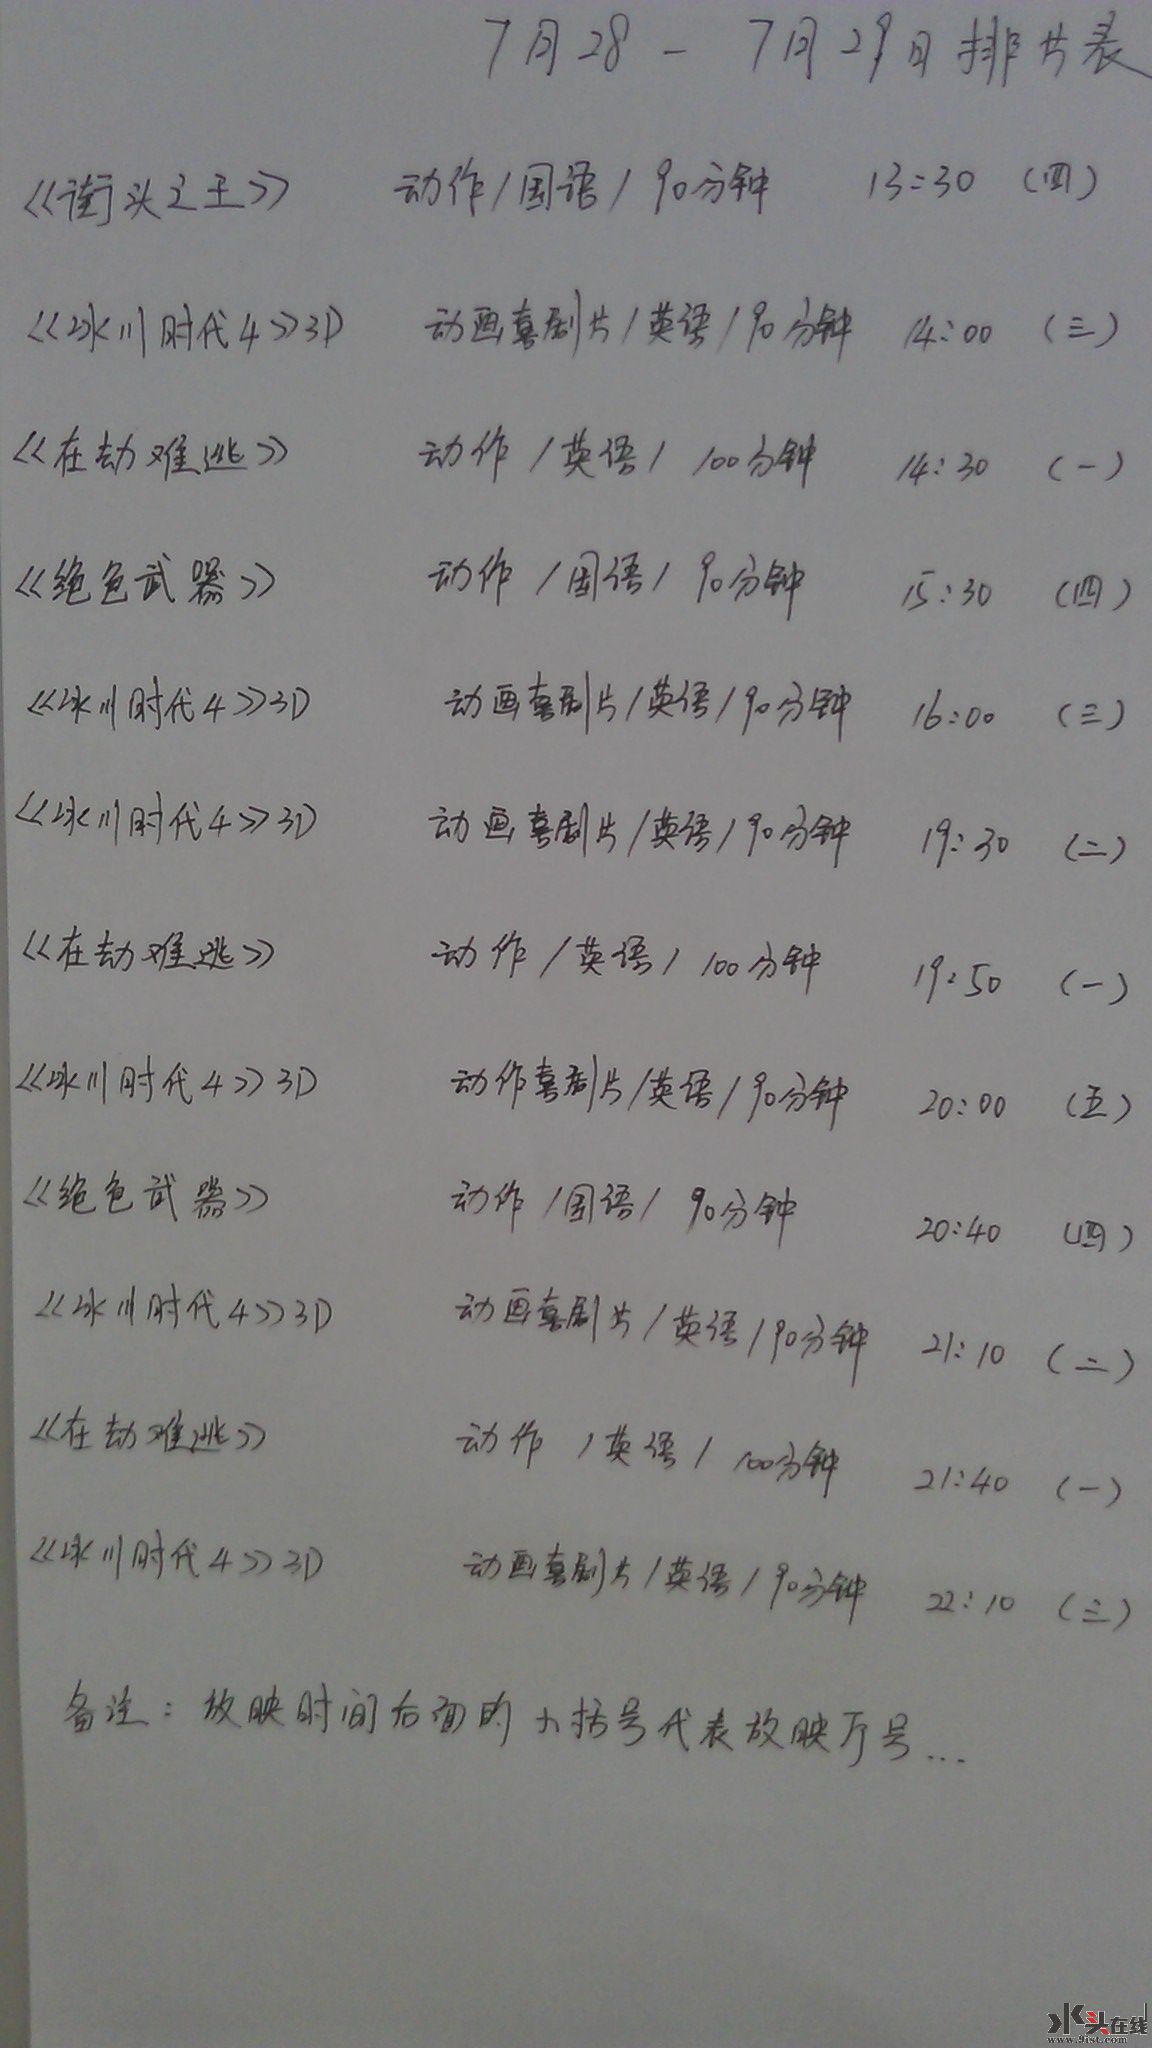 7月28-7月29日排片表
《街头之王》 动作/国语/90分钟 13:30 (四)
《冰川时代4》3D 动画喜剧片/英语/90分钟 14:00 (三)
《在劫难逃》 动作/英语/100分钟 14:30 (一)
《绝色武器》 动作/国语/90分钟 15:30 (四)
《冰川时代4》3D 动画喜剧片/英语/90分钟 16:00 (三)
《冰川时代4》3D 动画喜剧片/英语/90分钟 19:30 (二)
《在劫难逃》 动作/英语/100分钟 19:50 (一)
《冰川时代4》3D 动作喜剧片/英语/90分钟 20:00 (五)
《绝色武器》 动作/国语/90分钟 20:40 (四)
《冰川时代4》3D 动画喜剧片/英语/90分钟 21:10 (二)
《在劫难逃》 动作/英语/100分钟 21:40 (一)
《冰川时代4》3D 动画喜剧片/英语/90分钟 22:10 (三)
备注:放映时间后面的小括号代表放映厅号...
水头在线
www.9ist.com